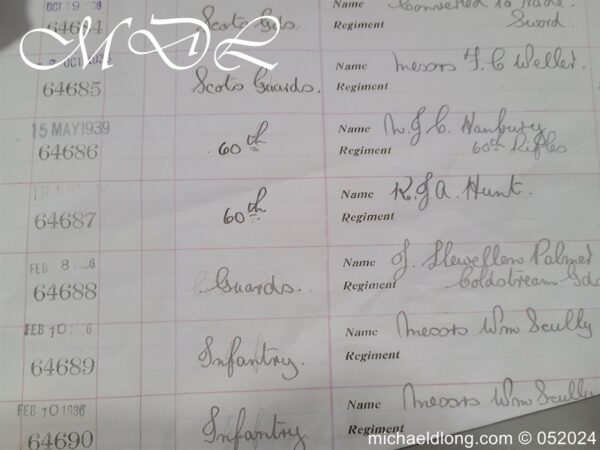 OCT 19 36
64684 Scots Gds. Name Converted to trade
Regiment Sword.
MDL
OCT 1936
64685 Scots Guards. Name Messrs F. C Weller.
Regiment
15 MAY 1939
64686 60th Name W. J. C. Hanbury
Regiment 60th Rifles
64687 60th Name K. J. A. Hunt.
Regiment
FEB 8 1936
64688 Guards. Name J. Llewellen Palmer
Regiment Coldstream Gds
FEB 10 1936
64689 Infantry. Name Messrs Wm Scully
Regiment
FEB 10 1936
64690 Infantry. Name Messrs Wm Scully
Regiment
michaeldlong.com © 052024